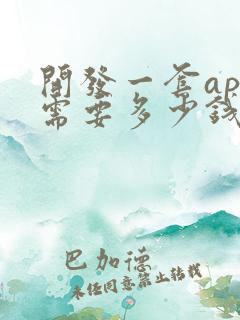 開發一套ap
需要多少錢
巴加德
未经同意禁止转载